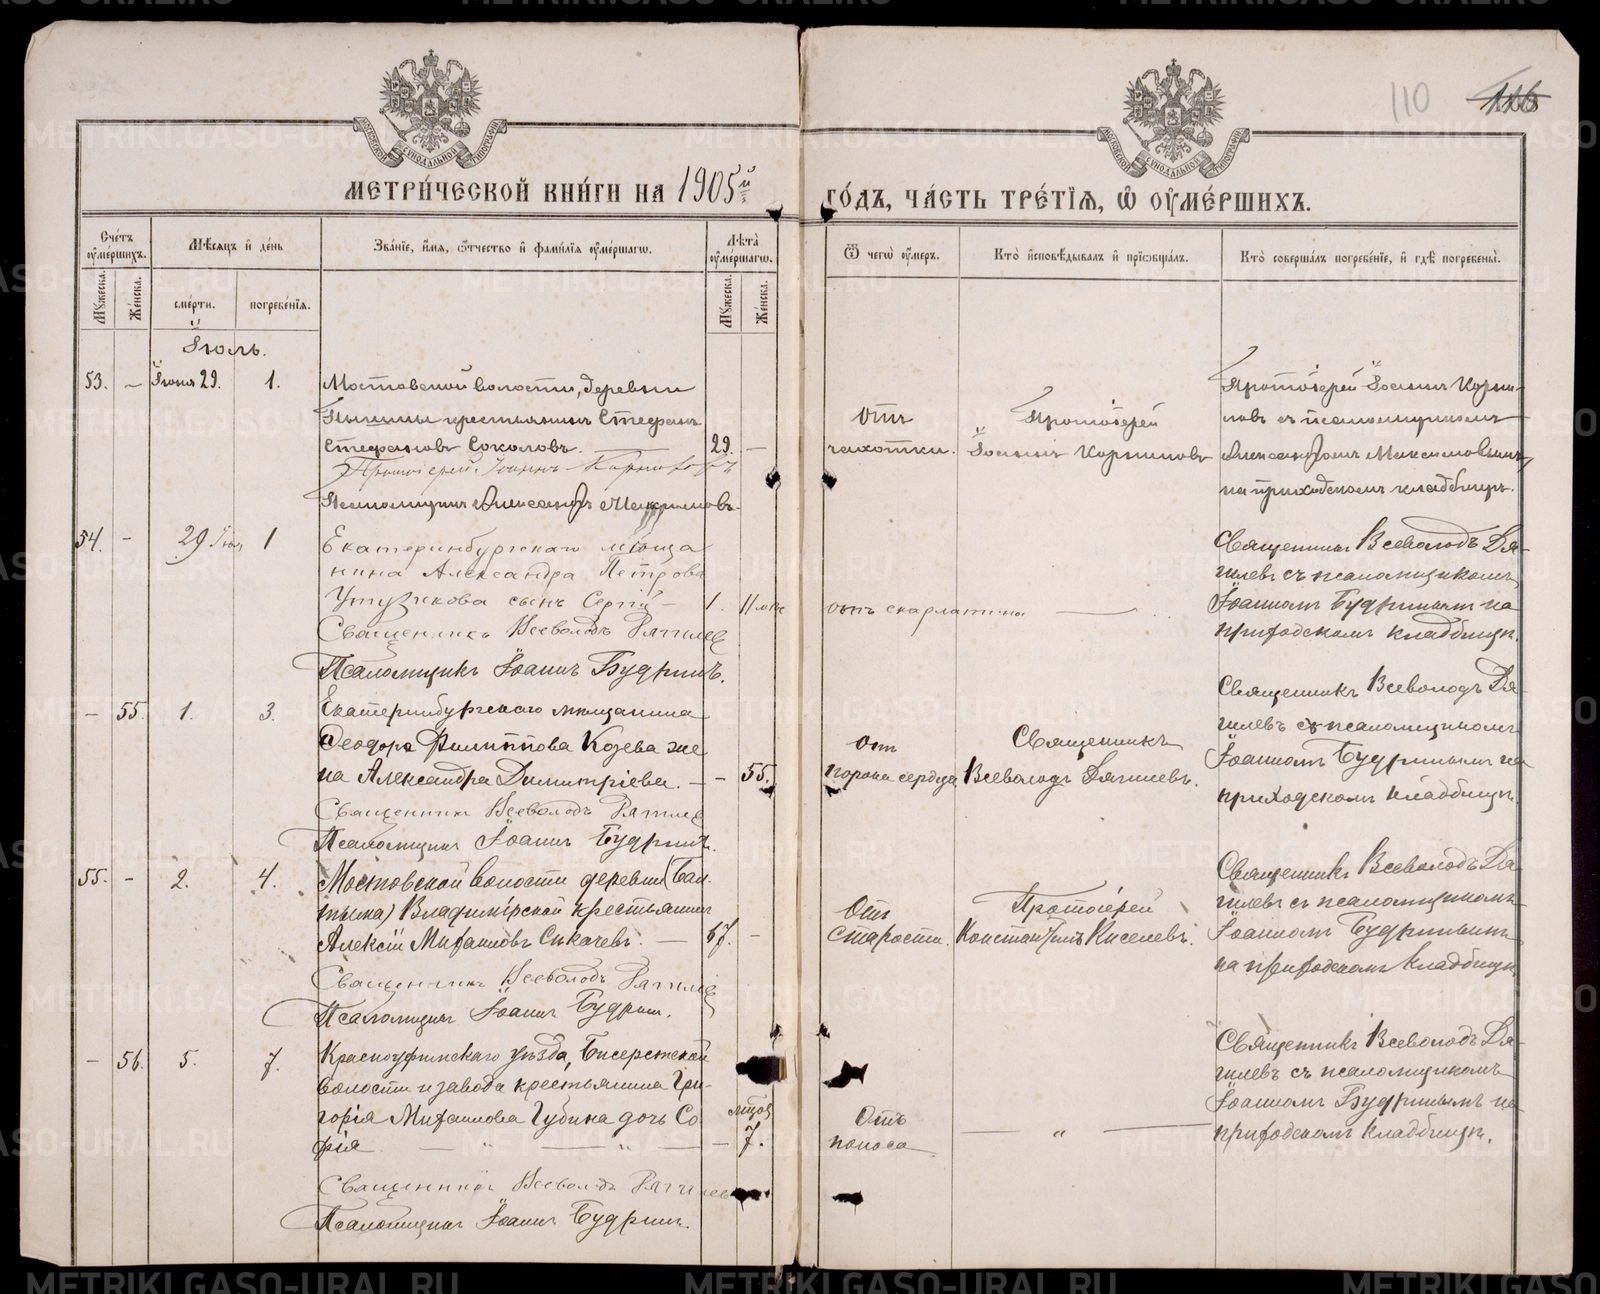 110 116
МОСКОВСКОЙ СѴНОДАЛЬНОЙ ТИПОГРАФІИ
МОСКОВСКОЙ СѴНОДАЛЬНОЙ ТИПОГРАФІИ
МЕТРИ́ЧЕСКОЙ КНИ́ГИ НА 1905й ГО́ДЪ, ЧА́СТЬ ТРЕ́ТІѦ, Ѡ҆ ОУ҆МЕ́РШИХЪ.
Сче́тъ оу҆ме́ршихъ.
Мꙋжеска.
Же́нска.
Мѣ́сѧцъ и҆ де́нь
сме́рти.
погребе́нїѧ.
Зва́нїе, и҆́мѧ, ѻ҆́тчество и҆ фами́лїѧ оу҆ме́ршагѡ.
Лѣ̀та оу҆ме́ршагѡ.
Мꙋжеска.
Же́нска.
Ѿ чегѡ̀ оу҆́меръ.
Кто̀ и҆сповѣ́дывалъ и҆ прїѡбща́лъ.
Кто̀ соверша́лъ погребе́нїе, и҆ гдѣ̀ погребены̀.
Іюль.
53. – Іюня 29. 1.
Мостовской волости, деревни
Пышмы крестьянинъ Стефанъ
Стефановъ Соколовъ. 29. –
Протоіерей Іоаннъ Корниловъ
Псаломщикъ Александръ Максимовъ.
Отъ
чахотки.
Протоіерей
Іоаннъ Корниловъ
Протоіерей Іоаннъ Корни-
ловъ съ псаломщикомъ
Александромъ Максимовымъ,
на приходскомъ кладбищѣ.
54. – 29 Іюн. 1
Екатеринбургскаго мѣща
нина Александра Петрова
сынъ Сергій – 1. 11 мѣс
Священникъ Всеволодъ Дягилев
Псаломщикъ Іоаннъ Будринъ.
отъ скарлатины —
Священникъ Всеволодъ Дя-
гилевъ съ псаломщикомъ
Іоанномъ Будринымъ на
приходскомъ кладбищѣ.
– 55. 1. 3.
Екатеринбургскаго мѣщанина
Ѳеодора Филиппова Козева же
на Александра Димитріева. – – 55.
Священникъ Всеволодъ Дягилев
Псаломщикъ Іоаннъ Будринъ.
Отъ
порока сердца
Священникъ
Всеволодъ Дягилевъ.
Священникъ Всеволодъ Дя-
гилевъ съ псаломщикомъ
Іоанномъ Будринымъ на
приходскомъ кладбищѣ.
55. – 2. 4.
Мостовской волости деревни (Бал-
тыма) Владимірской крестьянинъ
Алексій Михаиловъ Сикачевъ. — 67. –
Священникъ Всеволодъ Дягилев
Псаломщикъ Іоаннъ Будрин.
Отъ
старости.
Протоіерей
Константинъ Киселевъ.
Священникъ Всеволодъ Дя-
гилевъ съ псаломщикомъ
Іоанномъ Будринымъ
на приходскомъ кладбищѣ
– 56. 5. 7.
Красноуфимскаго уѣзда, Бисертской
волости и завода крестьянина Гри-
горія Михаилова Губина дочь Со
фія — " — " — – 7.
Священникъ Всеволодъ Дягилев
Псаломщикъ Іоаннъ Будринъ.
Отъ
поноса
— " —
Священникъ Всеволодъ Дя-
гилевъ съ псаломщикомъ
Іоанномъ Будринымъ на
приходскомъ кладбищѣ.
METRIKI.GASO-URAL.RU